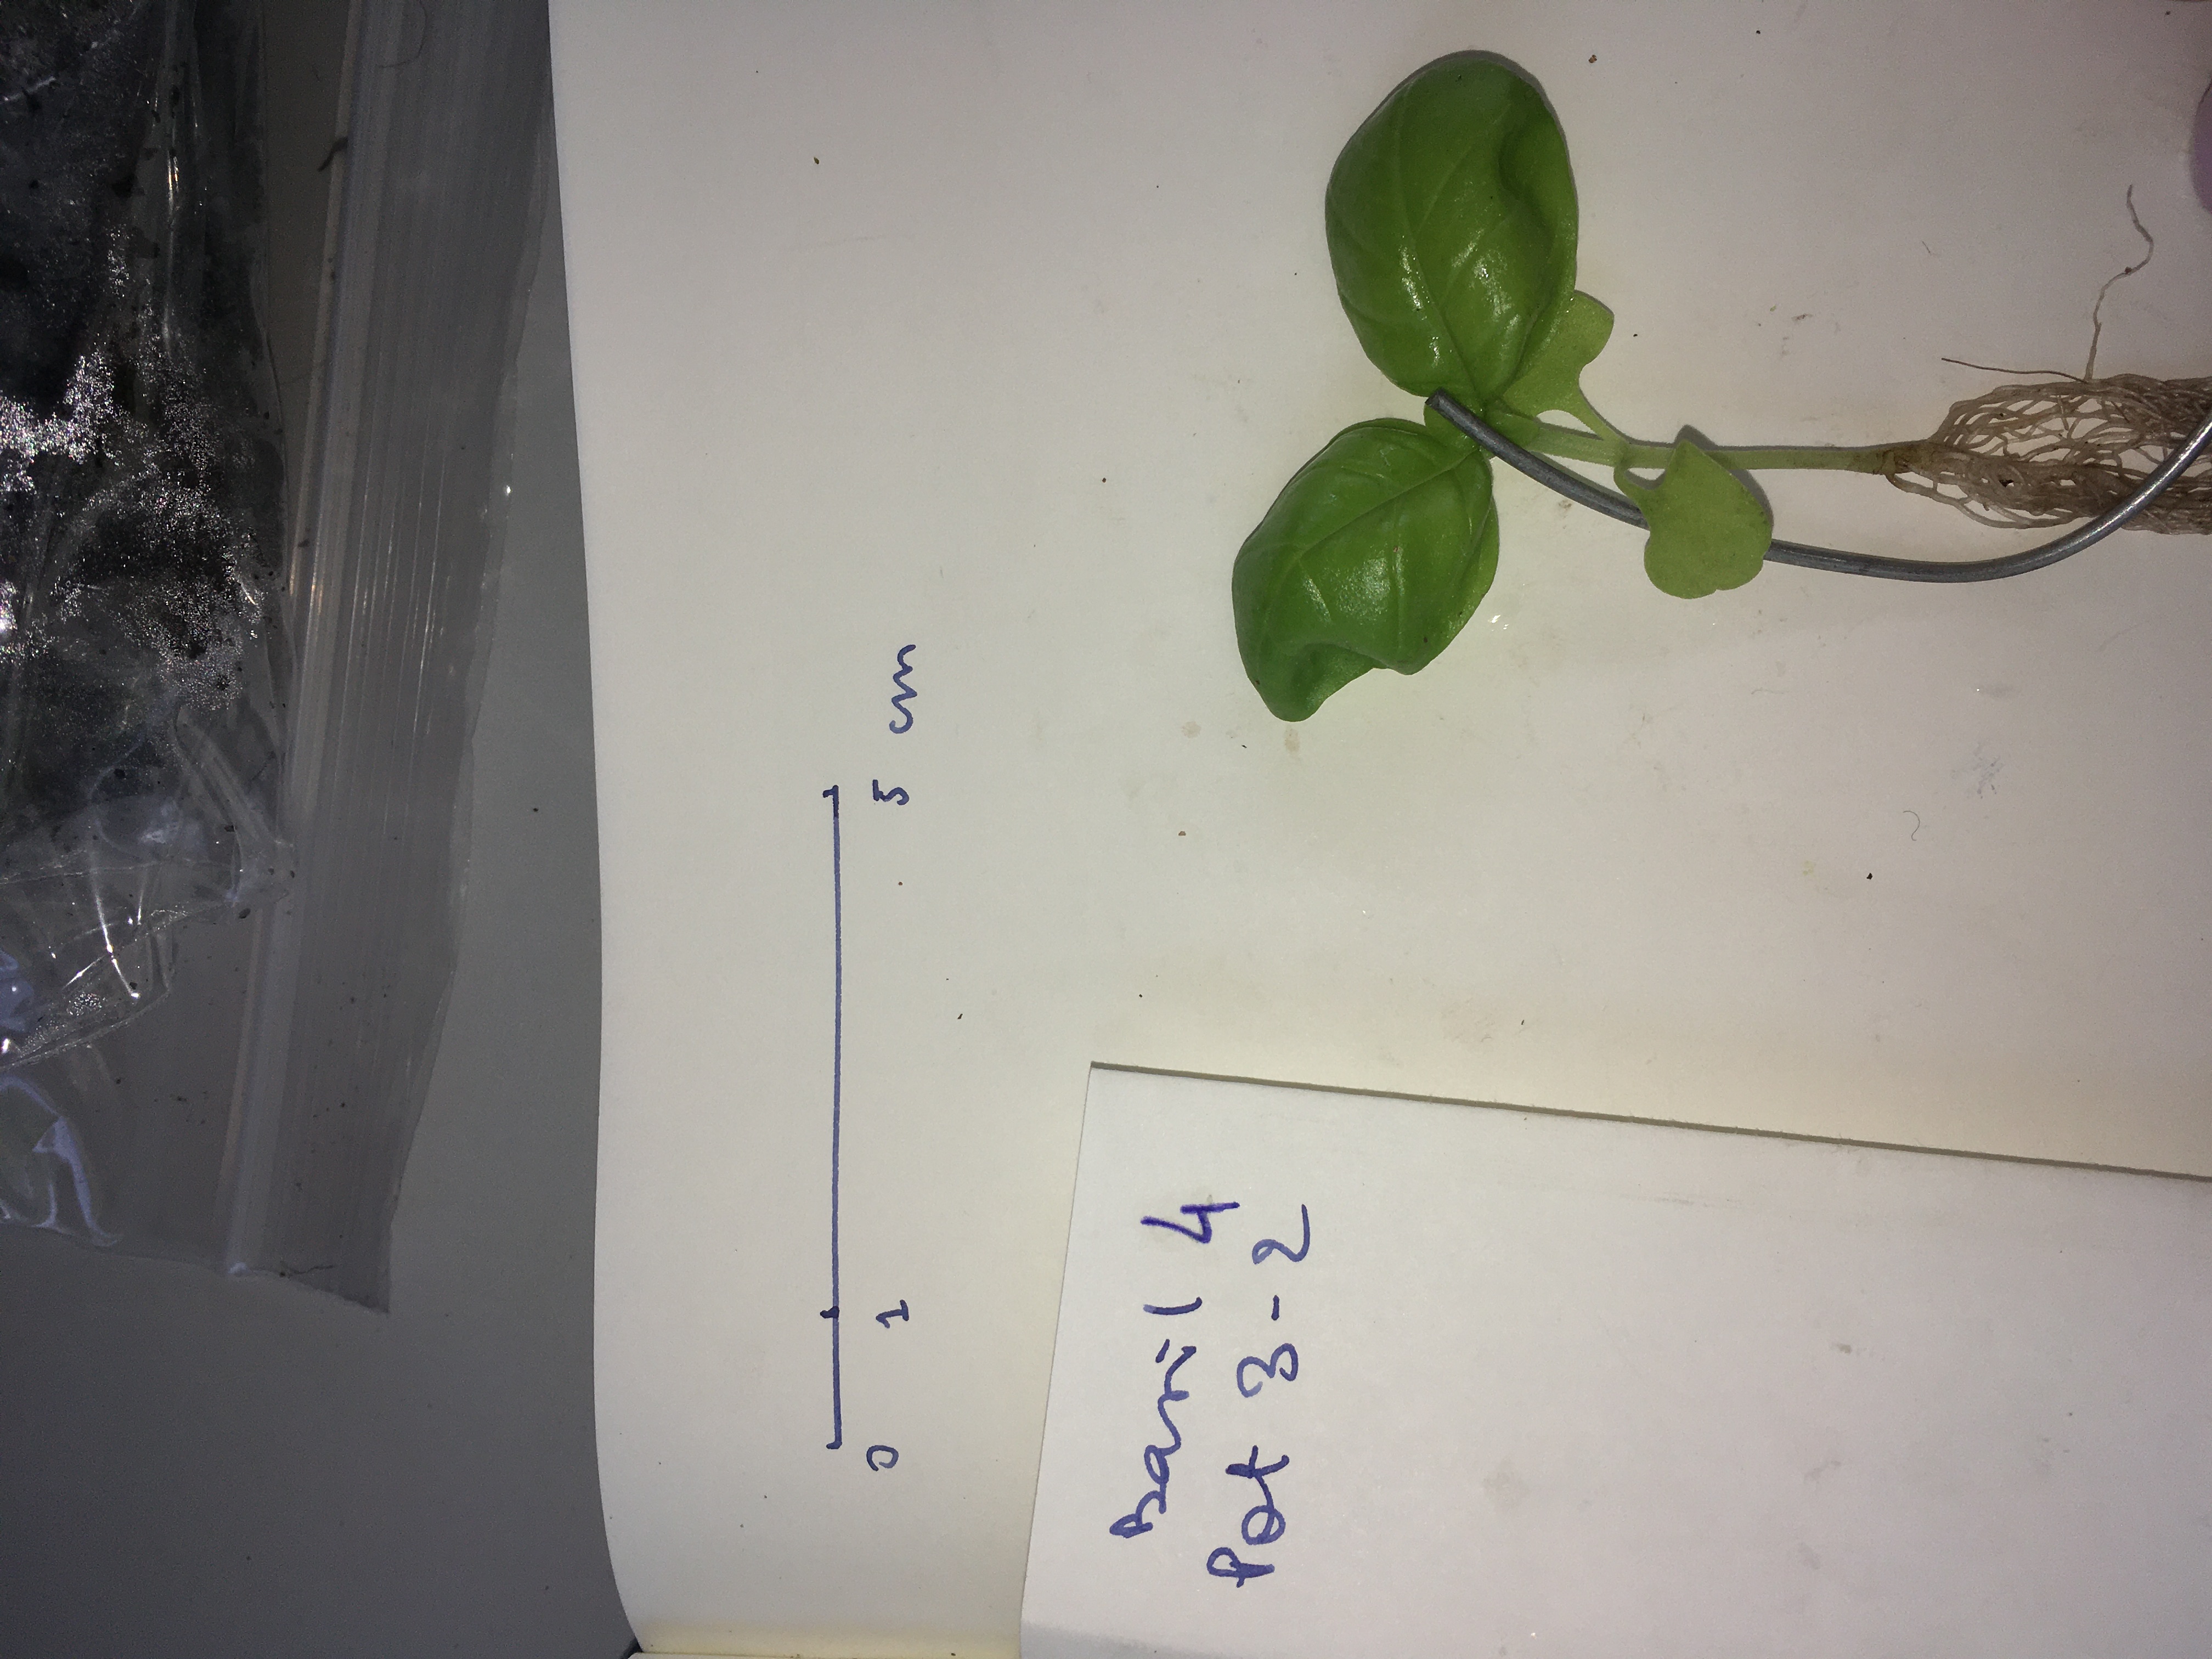 0 1 5 cm
Basil 4
Pot 3-2